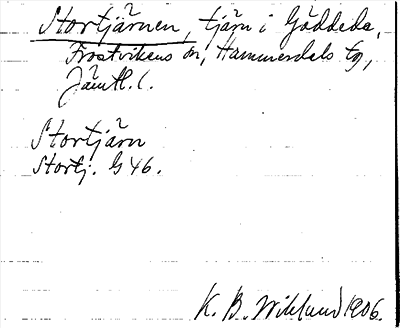 Stortjärnen, tjärn i Gäddede,
Frostvikens sn, Hammerdals tg,
Jämtl. l.
Stortjärn
Stortj. G 46.
K. B. Wiklund 1906.